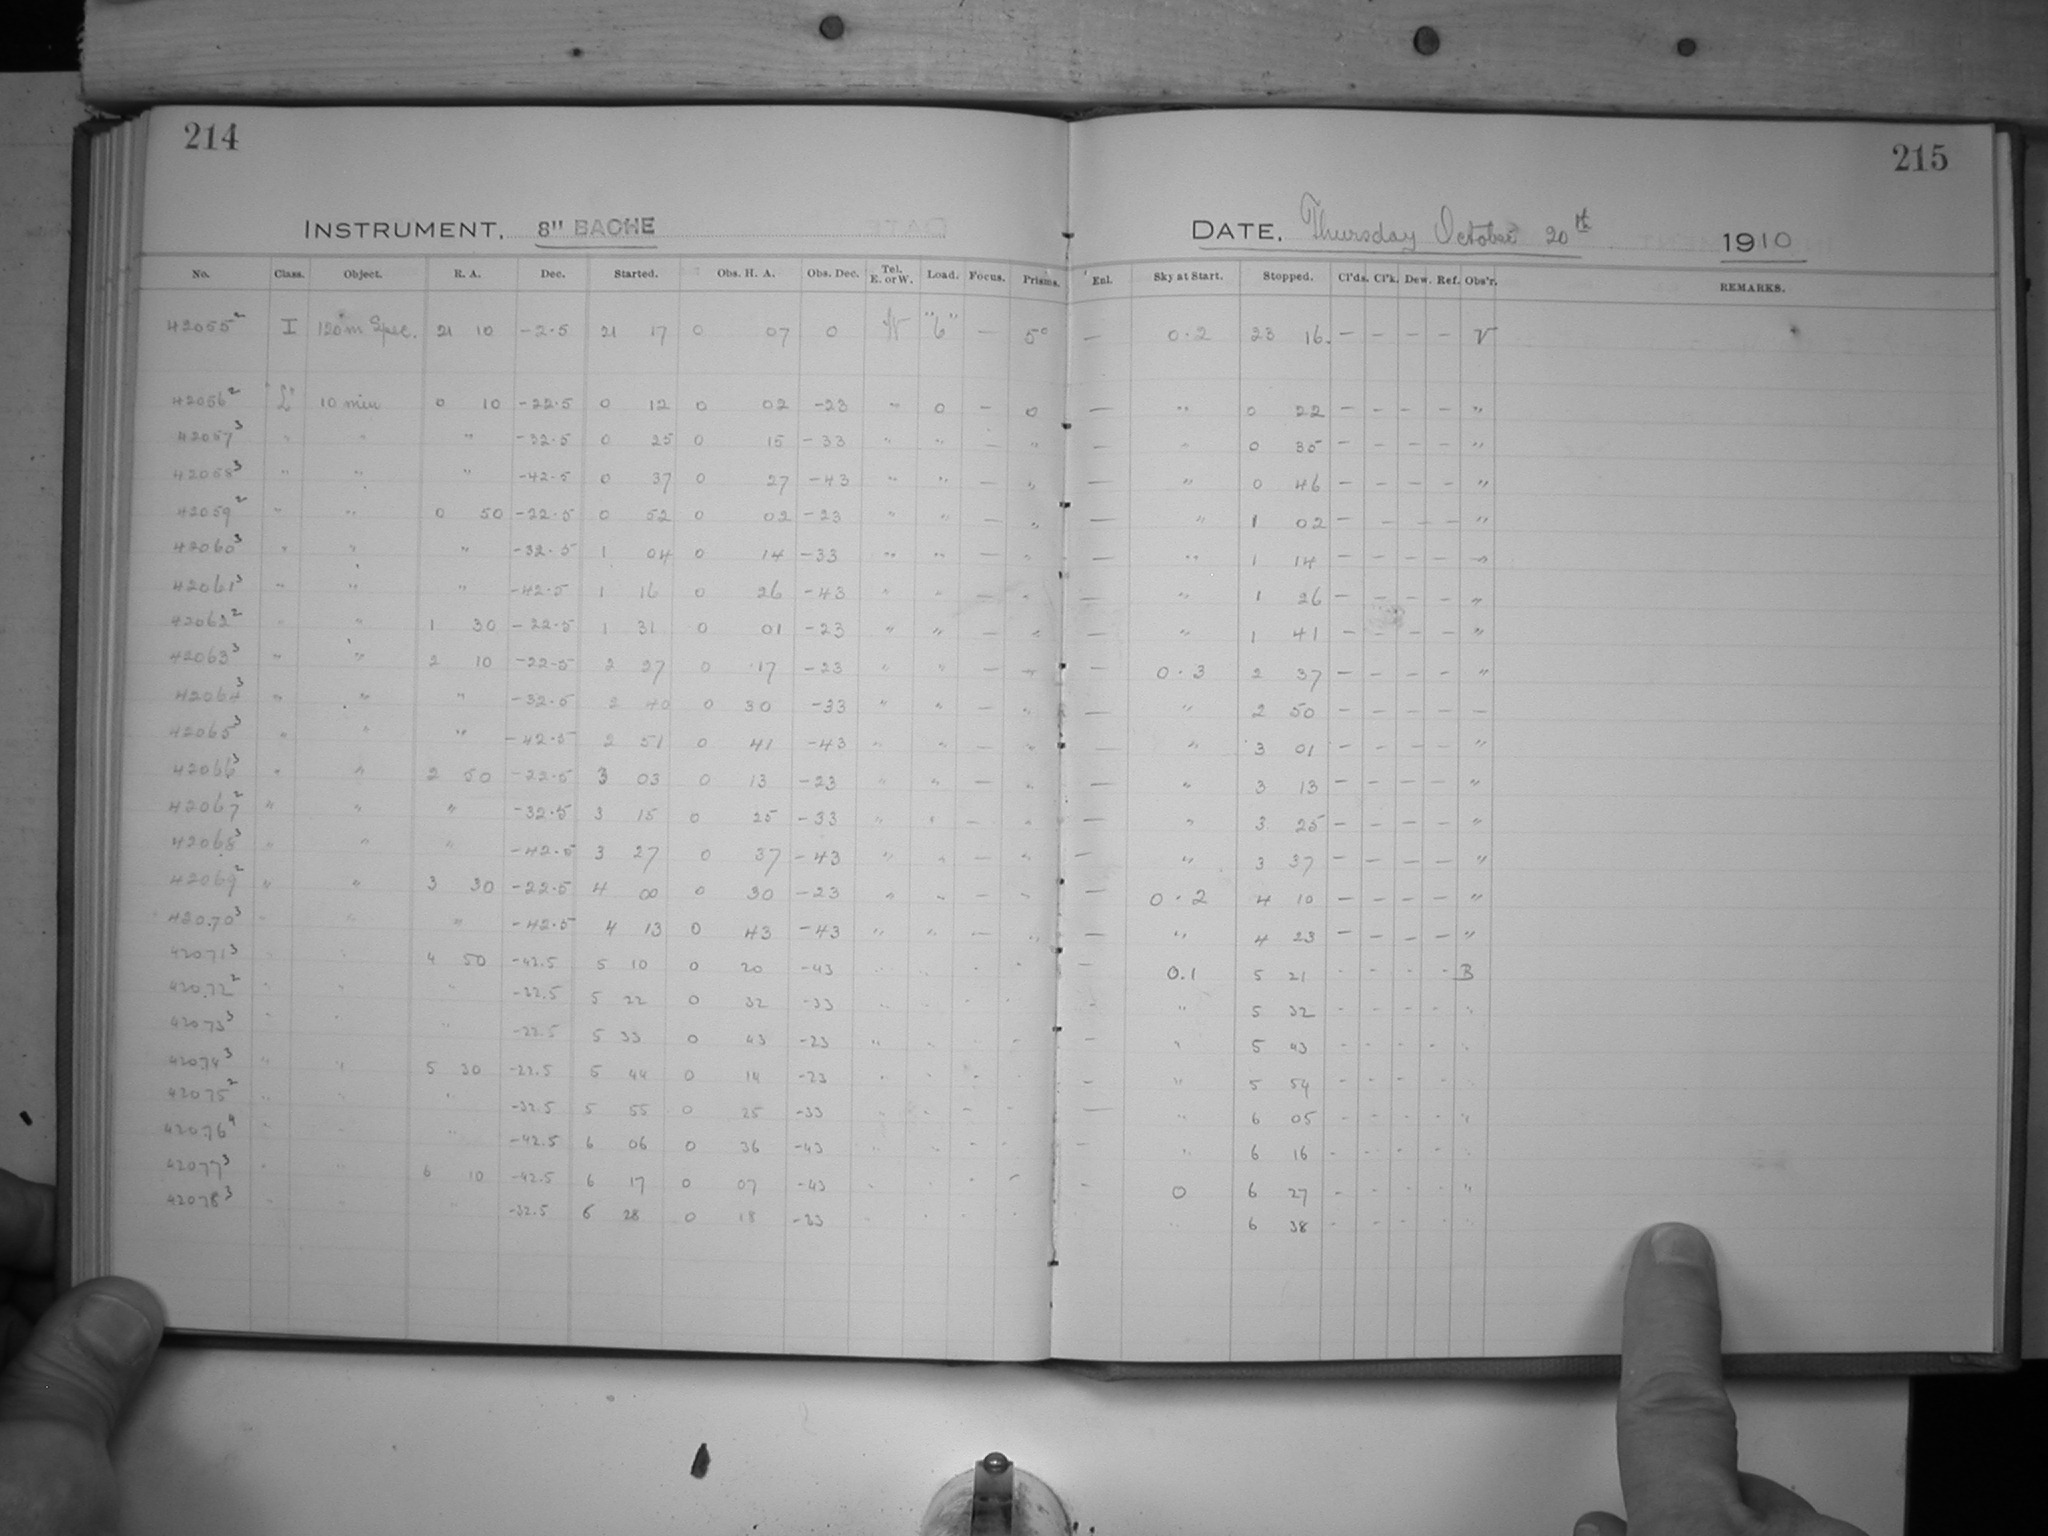 214
215
INSTRUMENT. 8" BACHE
DATE. Thursday October 20th 1910
No. Class. Object. R. A. Dec. Started. Obs. H. A. Obs. Dec. Tel. E. or W. Load. Focus. Prisms. Enl. Sky at Start. Stopped. Cl'ds. Cl'k. Dew. Ref. Obs'r. REMARKS.
42055² I 120 m Spec. 21 10 -2.5 21 17 0 07 0 W "6" — 5° — 0.2 23 16 — — — — V
42056² "L" 10 min 0 10 -22.5 0 12 0 02 -23 " 0 — 0 — " 0 22 — — — — "
42057³ " " " -32.5 0 25 0 15 -33 " " — " — " 0 35 — — — — "
42058³ " " " -42.5 0 37 0 27 -43 " " — " — " 0 46 — — — — "
42059² " " 0 50 -22.5 0 52 0 02 -23 " " — " — " 1 02 — — — — "
42060³ " " " -32.5 1 04 0 14 -33 " " — " — " 1 14 — — — — "
42061³ " " " -42.5 1 16 0 26 -43 " " — " — " 1 26 — — — — "
42062² " " 1 30 -22.5 1 31 0 01 -23 " " — " — " 1 41 — — — — "
42063³ " " 2 10 -22.5 2 27 0 17 -23 " " — " — 0.3 2 37 — — — — "
42064³ " " " -32.5 2 40 0 30 -33 " " — " — " 2 50 — — — — —
42065³ " " " -42.5 2 51 0 41 -43 " " — " — " 3 01 — — — — "
42066³ " " 2 50 -22.5 3 03 0 13 -23 " " — " — " 3 13 — — — — "
42067² " " " -32.5 3 15 0 25 -33 " " — " — " 3 25 — — — — "
42068³ " " " -42.5 3 27 0 37 -43 " " — " — " 3 37 — — — — "
42069² " " 3 30 -22.5 4 00 0 30 -23 " " — " — 0.2 4 10 — — — — "
42070³ " " " -42.5 4 13 0 43 -43 " " — " — " 4 23 — — — — "
42071³ " " 4 50 -42.5 5 10 0 20 -43 " " - " — 0.1 5 21 - - - - B
42072² " " " -32.5 5 22 0 32 -33 " " - " - " 5 32 - - - - "
42073³ " " " -22.5 5 33 0 43 -23 " " - " - " 5 43 - - - - "
42074³ " " 5 30 -22.5 5 44 0 14 -23 " " - " — " 5 54 - - - - "
42075² " " " -32.5 5 55 0 25 -33 " " - " — " 6 05 - - - - "
42076⁴ " " " -42.5 6 06 0 36 -43 " " - " - " 6 16 - - - - "
42077³ " " 6 10 -42.5 6 17 0 07 -43 " " - " - 0 6 27 - - - - "
42078³ " " " -32.5 6 28 0 18 -23 " " - " - " 6 38 - - - - "